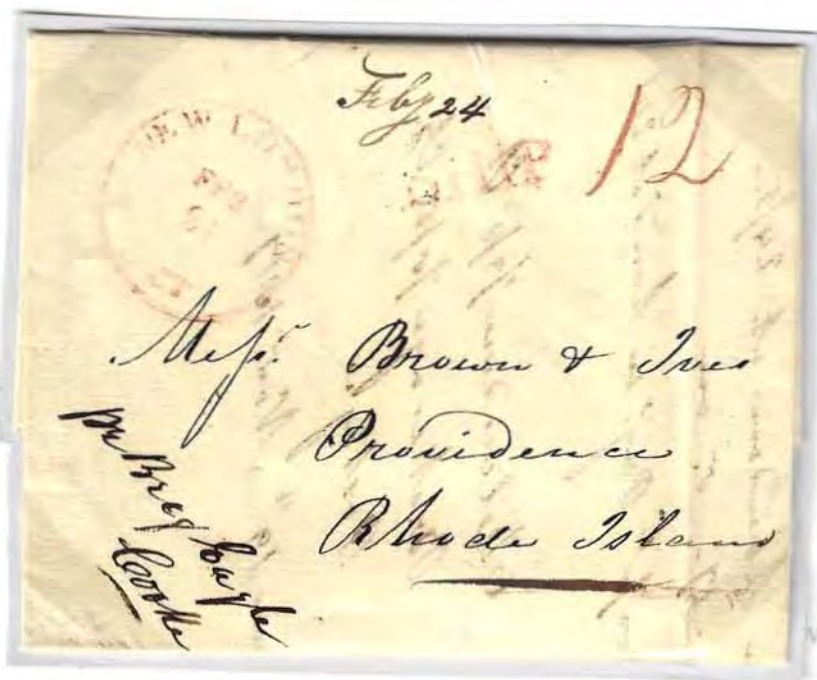 Feby 24
12
NEW LONDON
FEB
Messrs. Brown & Ives
Providence
Rhode Island
pr Brig Eagle
Cooke